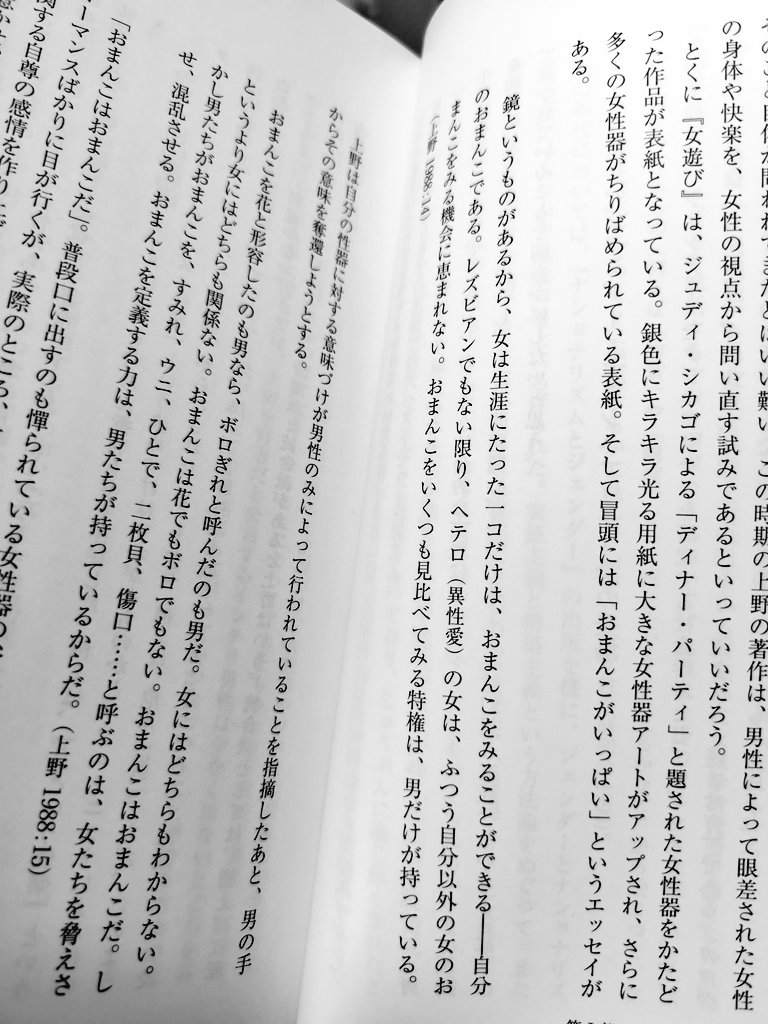 の身体や快楽を、女性の視点から問い直す試みであるといっていいだろう。
この時期の上野の著作は、男性によって眼差された女性
とくに『女遊び』は、ジュディ・シカゴによる「ディナー・パーティ」と題された女性器をかたど
った作品が表紙となっている。銀色にキラキラ光る用紙に大きな女性器アートがアップされ、さらに
多くの女性器がちりばめられている表紙。そして冒頭には「おまんこがいっぱい」というエッセイが
ある。
鏡というものがあるから、女は生涯にたった一コだけは、おまんこをみることができる――自分
のおまんこである。レズビアンでもない限り、ヘテロ（異性愛）の女は、ふつう自分以外の女のお
まんこをみる機会に恵まれない。おまんこをいくつも見比べてみる特権は、男だけが持っている。
（上野 1988:14）
上野は自分の性器に対する意味づけが男性のみによって行われていることを指摘したあと、男の手
からその意味を奪還しようとする。
おまんこを花と形容したのも男なら、ボロぎれと呼んだのも男だ。女にはどちらもわからない。
というより女にはどちらも関係ない。おまんこは花でもボロでもない。おまんこはおまんこだ。し
かし男たちがおまんこを、すみれ、ウニ、ひとで、二枚貝、傷口……と呼ぶのは、女たちを脅えさ
せ、混乱させる。おまんこを定義する力は、男たちが持っているからだ。（上野 1988:15）
「おまんこはおまんこだ」。普段口に出すのも憚られている女性器の
ーマンスばかりに目が行くが、実際のところ、
する自尊の感情を作り上げ